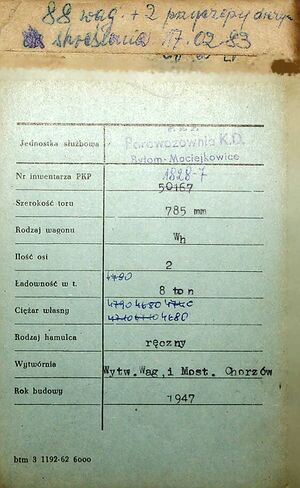 88 wag. + 2 przyczepy
skreślenia 17.02-83
P. K. P.
Jednostka służbowa Parowozownia K.D.
Bytom-Maciejkowice
1828-7
Nr inwentarza PKP 50167
Szerokość toru 785 mm
Rodzaj wagonu Wh
Ilość osi 2
4790
Ładowność w t. 8 ton
4790 4680 4740
Ciężar własny 4680
Rodzaj hamulca ręczny
Wytwórnia Wytw.Wag.i Most. Chorzów
Rok budowy 1947
btm 3 1192-62 6000